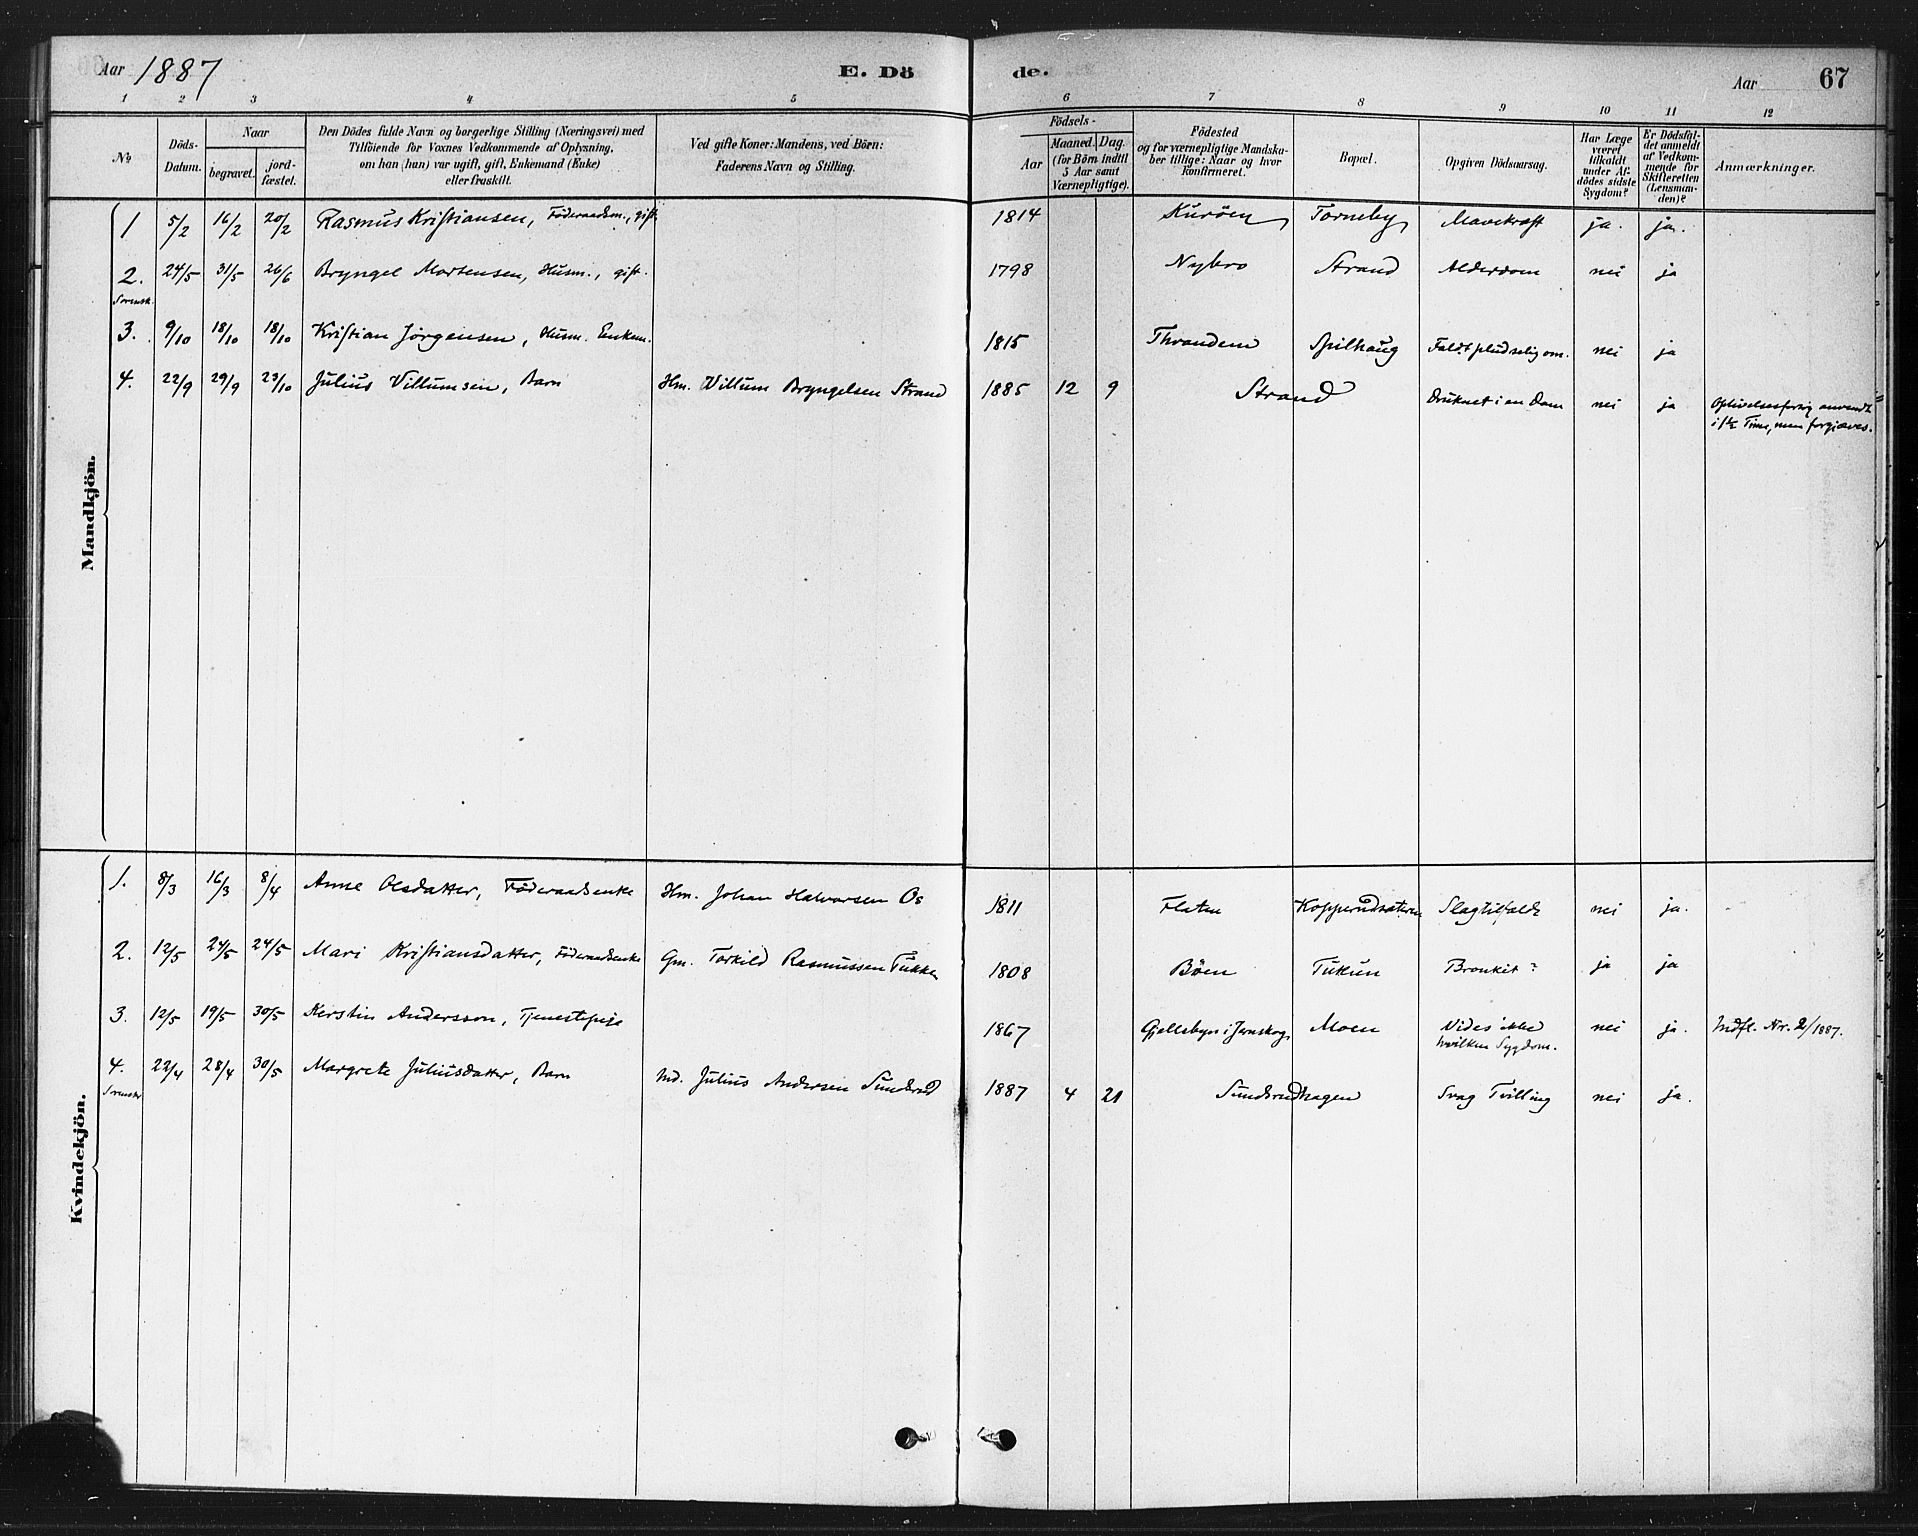 Aar 1887 E. Dö de. Aar 67
1 2 3 4 5 6 7 8 9 10 11 12
No Döds-Datum. Naar begravet. jord-fæstet. Den Dödes fulde Navn og borgerlige Stilling (Næringsvei) med Tilföiende for Voxnes Vedkommende af Oplysning, om han (hun) var ugift, gift, Enkemand (Enke) eller fraskilt. Ved gifte Koner: Mandens, ved Börn: Faderens Navn og Stilling. Födsels- Aar Maaned. Dag. (for Börn indtil 5 Aar samt Værnepligtige). Födested og for værnepligtige Mandskaber tillige: Naar og hvor konfirmeret. Bopæl. Opgiven Dödsaarsag. Har Læge været tilkaldt under Afdödes sidste Sygdom? Er Dödsfaldet anmeldt af Vedkommende for Skifteretten (Lensmanden)? Anmærkninger.
Mandkjön.
1 5/2 16/2 20/2 Rasmus Kristiansen, Föderaadsm., gift 1814 Kuröen Torneby Mavekræft ja. ja.
2. 24/5 31/5 26/6 Bryngel Mortensen, Husm., gift. 1798 Nybro Strand Alderdom nei ja
Svensk.
3. 9/10 18/10 18/10 Kristian Jörgensen, Husm. Enkem. 1815 Throndem Spilhaug Faldt pludselig om. nei ja
4. 22/9 29/9 23/10 Julius Villumsen, Barn Hm. Villum Bryngelsen Strand 1885 12 9 Strand Druknet i en Dam nei ja Oplivelsesforsøg anvendt
i 1½ Time, men forgjæves.
Kvindekjön.
1. 8/3 16/3 8/4 Anne Olsdatter, Föderaadsenke Hm. Johan Halvorsen Os 1811 Flaten Kopperudsæteren Slagtilfælde nei ja.
2. 12/5 24/5 24/5 Mari Kristiansdatter, Föderaadsenke Gm. Torkild Rasmussen Tukken 1808 Böen Tukun Bronkit? ja ja
3. 12/5 19/5 30/5 Kerstin Andersson, Tjenestepige 1867 Gjellebyn i Jernskog Moen Vides ikke nei ja. Indfl. Nr. 2/1887.
hvilken Sygdom.
4. 22/4 28/4 30/5 Margrete Juliusdatter, Barn Ind. Julius Andersen Sundsrud 1887 4 21 Sundsrudhagen Svag Tvilling nei ja.
Svensk